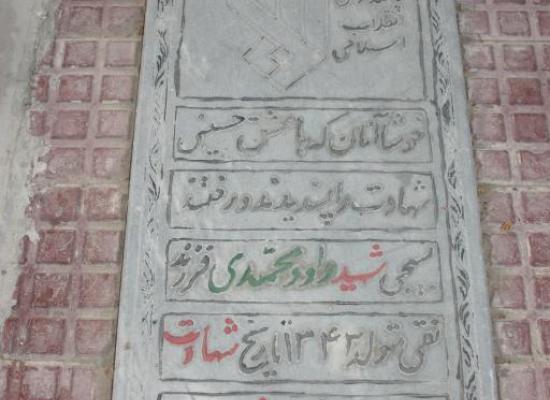 انقلاب
اسلامی
خوشا آنان که با عشق حسینی
شهادت را پسندیدند و رفتند
بسیجی شهید داود محمدی فرزند
نقی تولد ۱۳۴۳ تاریخ شهادت